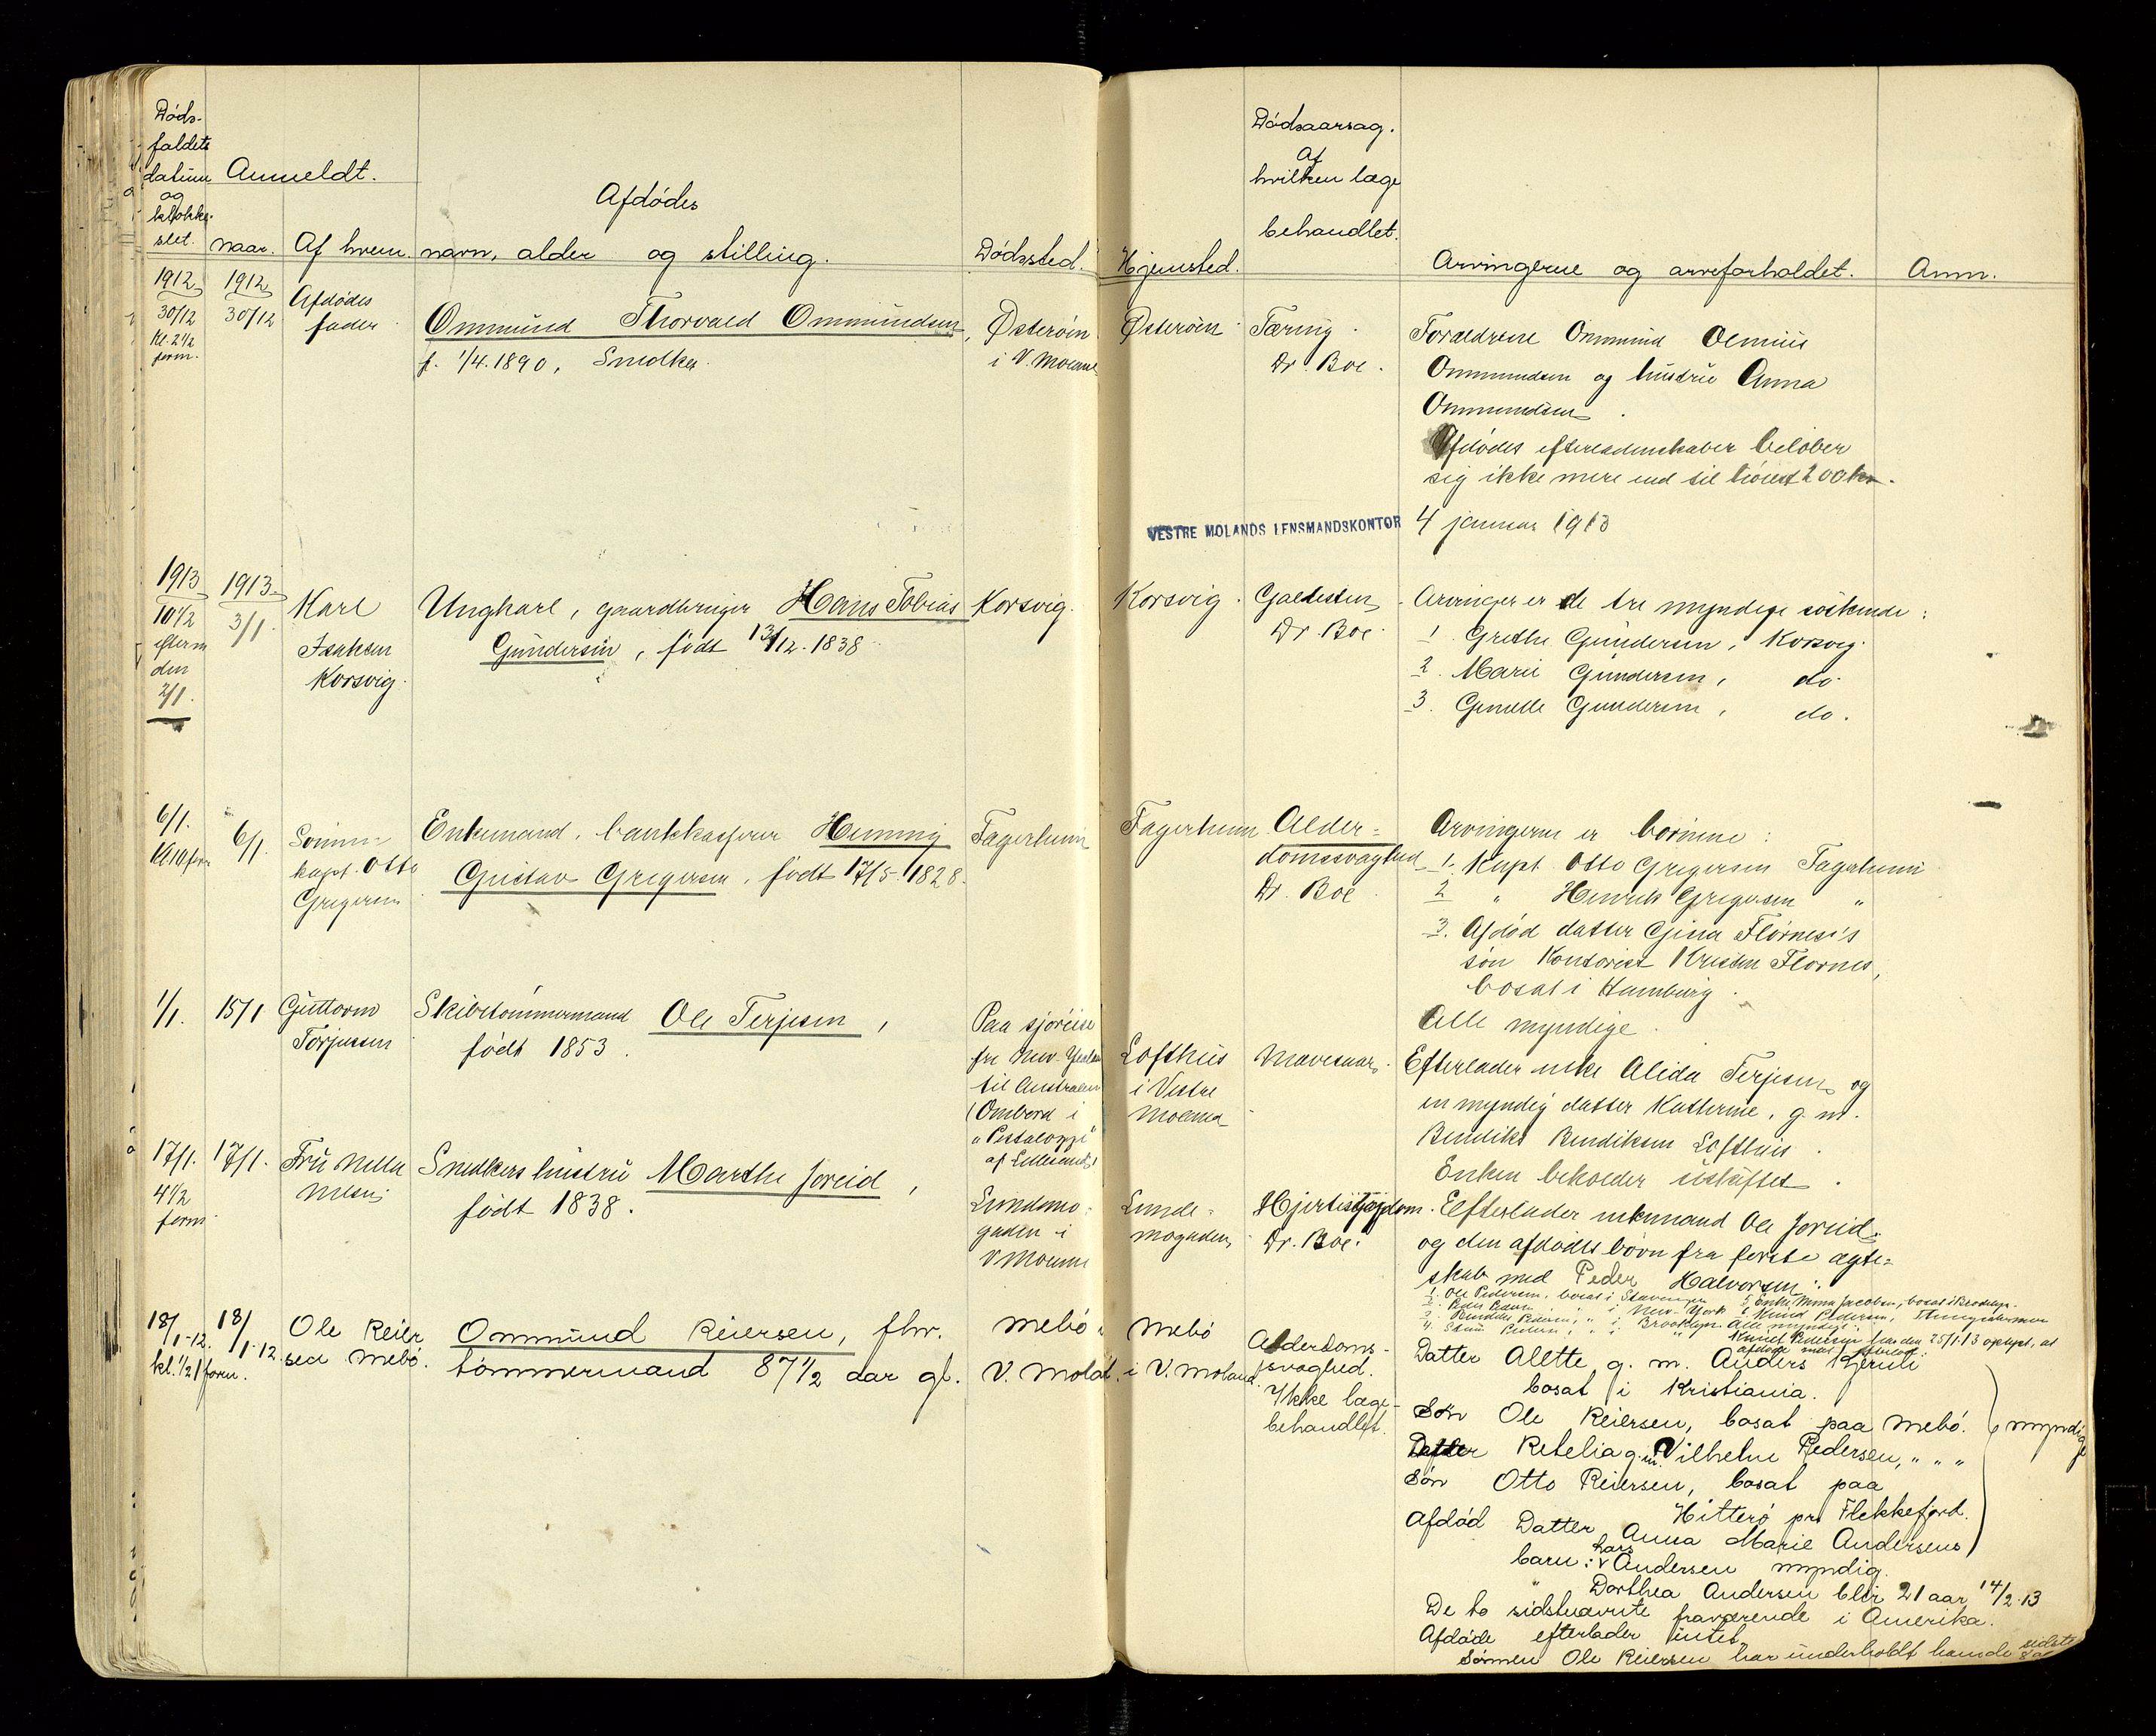 Døds-
faldets
datum
og
klokke-
slet.
Anmeldt.
naar.
Af hvem.
Afdødes
navn, alder og stilling.
Dødssted.
Hjemsted.
Dødsaarsag.
Af
hvilken læge
behandlet.
Arvingerne og arveforholdet.
Anm.
1912
30/12
Kl. 2½
form.
1912
30/12
Afdødes
fader
Ommund Thorvald Ommundsen,
f. 1/4.1890, Snedker.
Østerøen
i V. Moland
Østerøen
Tæring.
Dr. Boe.
Forældrene Ommund
Ommundsen og hustru Anna
Ommundsen
Afdødes efterladenskaber beløber
sig ikke mere end til høiest 200 kr.
VESTRE MOLANDS LENSMANDSKONTOR
4 januar 1913
1913
10½
efterm
den
2/1.
1913
3/1
Karl
Isaksen
Korsvig.
Ungkarl, gaardbruger Hans Tobias
Gundersen, født 13/12. 1838
Korsvig.
Korsvig.
Galdesten
Dr Boe.
Arvinger er de tre myndige søskende:
1. Grethe Gundersen, Korsvig.
2. Marie Gundersen, do.
3. Gunelle Gundersen, do.
6/1.
Kl 10 form
6/1.
kapt. Otto
Gregersen
Enkemand, bankkasserer Henning
Gustav Gregersen, født 17/5. 1828.
Fagerheim
Fagerheim
Alder-
domssvaghed
Dr. Boe
Arvingerne er børnene:
1. Kapt. Otto Gregersen Fagerheim
2 " Henrik Gregersen "
3. Afdød datter Gina Flørnes's
søn Kontorist Kristen Flørnes,
bosat i Hamburg.
Alle myndige.
1/1.
15/1
Guttorm
Torjussen
Skibstømmermand Ole Terjesen,
født 1853.
Paa sjøreise
fra New-Yealan
til Australien
(Ombord i
"Pestalozzi"
af Lillesand)
Lofthus
i Vestre
Moland
Mavesaar.
Efterlader enke Alida Terjesen og
en myndig datter Kathrine, g. m.
Bendiks Bendiksen Lofthus.
Enken beholder uskiftet.
17/1.
4½
form
17/1.
Fru Nella
Snedkers hustru Marthe Joreid,
født 1838.
Lundemo-
gaden i
V Moland
Lunde-
mogaden
Hjertesygdom.
Dr. Boe.
Efterlader enkemand Ole Joreid.
og den afdødes børn fra første ægte-
skab med Peder Halvorsen:
1. Ole Pedersen, bosat i Stavanger 5 Enke Anna Jacobsen, bosat i Brooklyn.
2. Peder Pedersen, " i New-York 6 Knud Pedersen,
3. Bendiks Pedersen, " i Brooklyn. Alle myndige.
Knud Pedersen har den 25/1.13 oplyst, at
18/1-12.
kl. ½1 form.
18/1-12.
Ole Reier
sen Mebø.
Ommund Reiersen, fhv.
tømmermand 87½ aar gl.
Mebø
V. Molad.
Mebø
i V. Moland.
Alderdoms-
svaghed.
Ikke læge-
behandlet.
Datter Alette g. m. Anders
bosat i Kristiania.
Søn Ole Reiersen, bosat paa Mebø.
Datter Retelia g. m. Vilhelm Pedersen, " " "
Søn Otto Reiersen, bosat paa
Hitterø pr. Flekkefjord.
myndige
Afdød Datter Anna Marie Andersens
barn: Lars Andersen myndig.
" Dorthea Andersen blir 21 aar 14/2.13
De to sidstnævnte fraværende i Amerika.
Afdøde efterlader intet.
Sønnen Ole Reiersen har underholdt ham de sidste